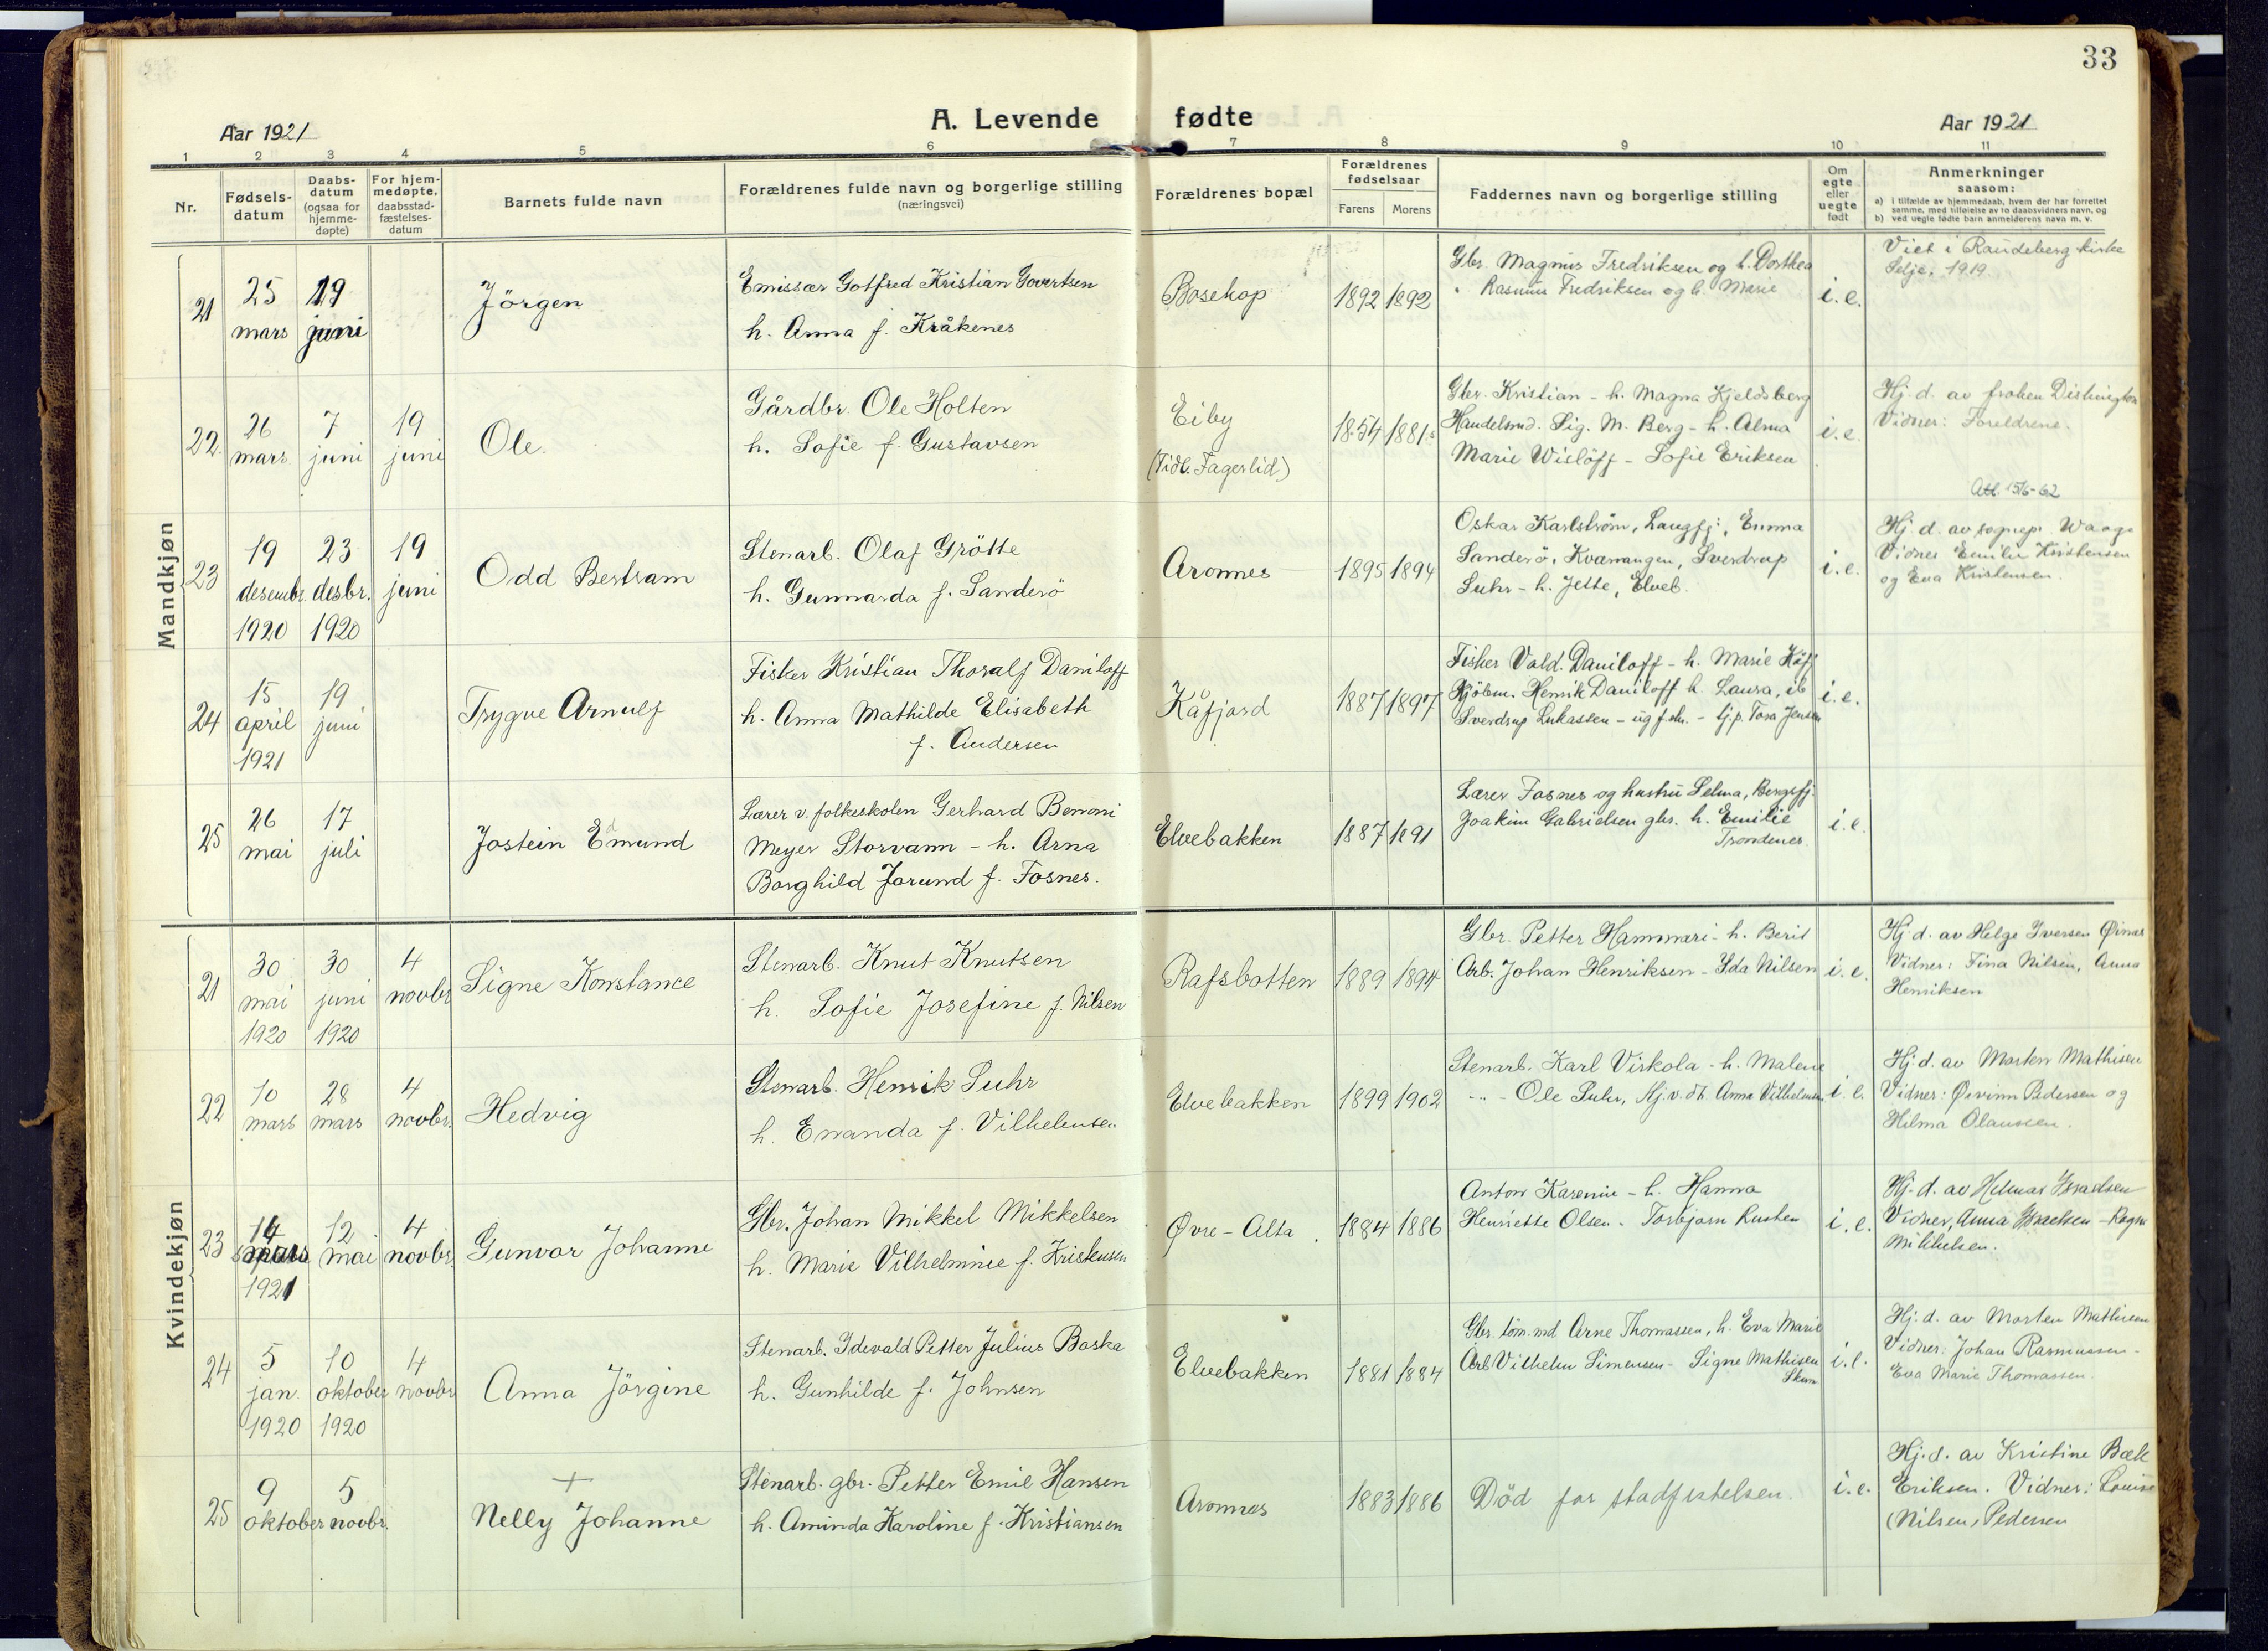 33
A. Levende fødte
Aar 1921
Aar 1921
1 2 3 4 5 6 7 8 9 10 11
Nr.
Fødsels-
datum
Daabs-
datum
(ogsaa for
hjemme-
døpte)
For hjem-
medøpte,
daabsstad-
fæstelses-
datum
Barnets fulde navn
Forældrenes fulde navn og borgerlige stilling
(næringsvei)
Forældrenes bopæl
Forældrenes
fødselsaar
Farens Morens
Faddernes navn og borgerlige stilling
Om
egte
eller
uegte
født
Anmerkninger
saasom:
a) i tilfælde av hjemmedaab, hvem der har forrettet
samme, med tilføielse av to daabsvidners navn, og
b) ved uegte fødte barn anmelderens navn m. v.
Mandkjøn
21
25
mars
19
juni
Jörgen
Emissær Gotfred Kristian Govertsen
h. Anna f. Kråkenes
Bosekop
1892 1892
Gbr. Magnus Fredriksen og h. Dorthea
" Rasmus Fredriksen og h. Marie
i.e.
Viet i Raudeberg kirke
Selje. 1919.
22.
26
mars
7
juni
19
juni
Ole.
Gårdbr. Ole Holten
h. Sofie f. Gustavsen
Eiby
(Tidl. Fagerlid)
1854 1881
Gbr. Kristian - h. Magna Kjeldsberg
Handelsmd. Sig. M. Berg - h. Alma
Marie Wislöff - Sofie Eriksen
i.e.
Hj. d. av frøken Distington
Vidner: Foreldrene.
Att. 15/6-62
23
19
desembr.
1920
23
desbr.
1920
19
juni
Odd Bertram
Stenarb. Olaf Grötte
h. Gunnarda f. Sanderö
Aronnes
1895 1894
Oskar Karlström, Langfj:, Emma
Sanderö, Kvænangen, Sverdrup
Suhr - h. Jette, Elveb.
i.e.
Hj. d. av sognepr. Waage
Vidner Emilie Kristensen
og Eva Kristensen.
24
15
april
1921
19
juni
Trygve Arnulf
Fisker Kristian Thoralf Daniloff
h. Anna Mathilde Elisabeth
f. Andersen
Kåfjord
1887 1897
Fisker Vald. Daniloff - h. Marie Kåfj
Kjöbm. Henrik Daniloff h. Laura, ib
Sverdrup Lukassen - ugf. - tj.p. Tora Jensen
i.e.
25
26
mai
17
juli
Jostein Emund
Lærer v. folkeskolen Gerhard Benoni
Meyer Storvann - h. Arna
Borghild Jorund f. Fosnes.
Elvebakken
1887 1891
Lærer Fosnes og hustru Selma, Bergsfj.
Joakim Gabrielsen gbr. h. Emilie
Trondenes.
i.e.
Kvindekjøn
21
30
mai
1920
30
juni
1920
4
novbr
Signe Konstance
Stenarb. Knut Knutsen
h. Sofie Josefine f. Nilsen
Rafsbotten
1889 1894
Gbr. Petter Hammari - h. Berit
Arb. Johan Henriksen - Ida Nilsen
i.e.
Hj. d. av Helge Iversen Øinas
Vidner: Tina Nilsen, Anna
Henriksen
22
10
mars
28
mars
4
novbr.
Hedvig
Stenarb. Henrik Suhr
h. Ewanda f. Vilhelmsen
Elvebakken
1899 1902
Stenarb. Karl Virkola - h. Malene
-"- Ole Suhr, Hj.v. dt. Anna Vilhelmsen
i.e.
Hj.d. av Morten Mathisen
Vidner: Øivinn Pedersen og
Hilma Olaussen.
23
14
mars
1921
12
mai
4
novbr.
Gunvor Johanne
Gbr. Johan Mikkel Mikkelsen
h. Marie Vilhelmine f. Kristensen
Øvre-Alta
1884 1886
Anton Karenius - h. Hanna
Henriette Olsen - Torbjørn Rusten
i.e.
Hj. d. av Hilmar Israelsen
Vidner, Anna Israelsen - Ragna
Mikkelsen.
24
5
jan.
1920
10
oktober
1920
4
novbr
Anna Jörgine
Stenarb. Idevald Petter Julius Baska
h. Gunhilde f. Johnsen
Elvebakken
1881 1884
Gbr. töm.md Arne Thomassen, h. Eva Marie
Arb Vilhelm Simensen - Signe Mathisen
i.e.
Hj. d. av Morten Mathisen
Vidner: Johan Rasmussen -
Eva Marie Thomassen.
25
9
oktober
5
novbr.
+
Nelly Johanne
Stenarb. gbr. Petter Emil Hansen
h. Aminda Karoline f. Kristiansen
Aronnes
1883 1886
Död før stadfestelsen.
i.e.
Hj. d. av Kristine Bæk
Eriksen. Vidner: Louise
(Nilsen, Pedersen